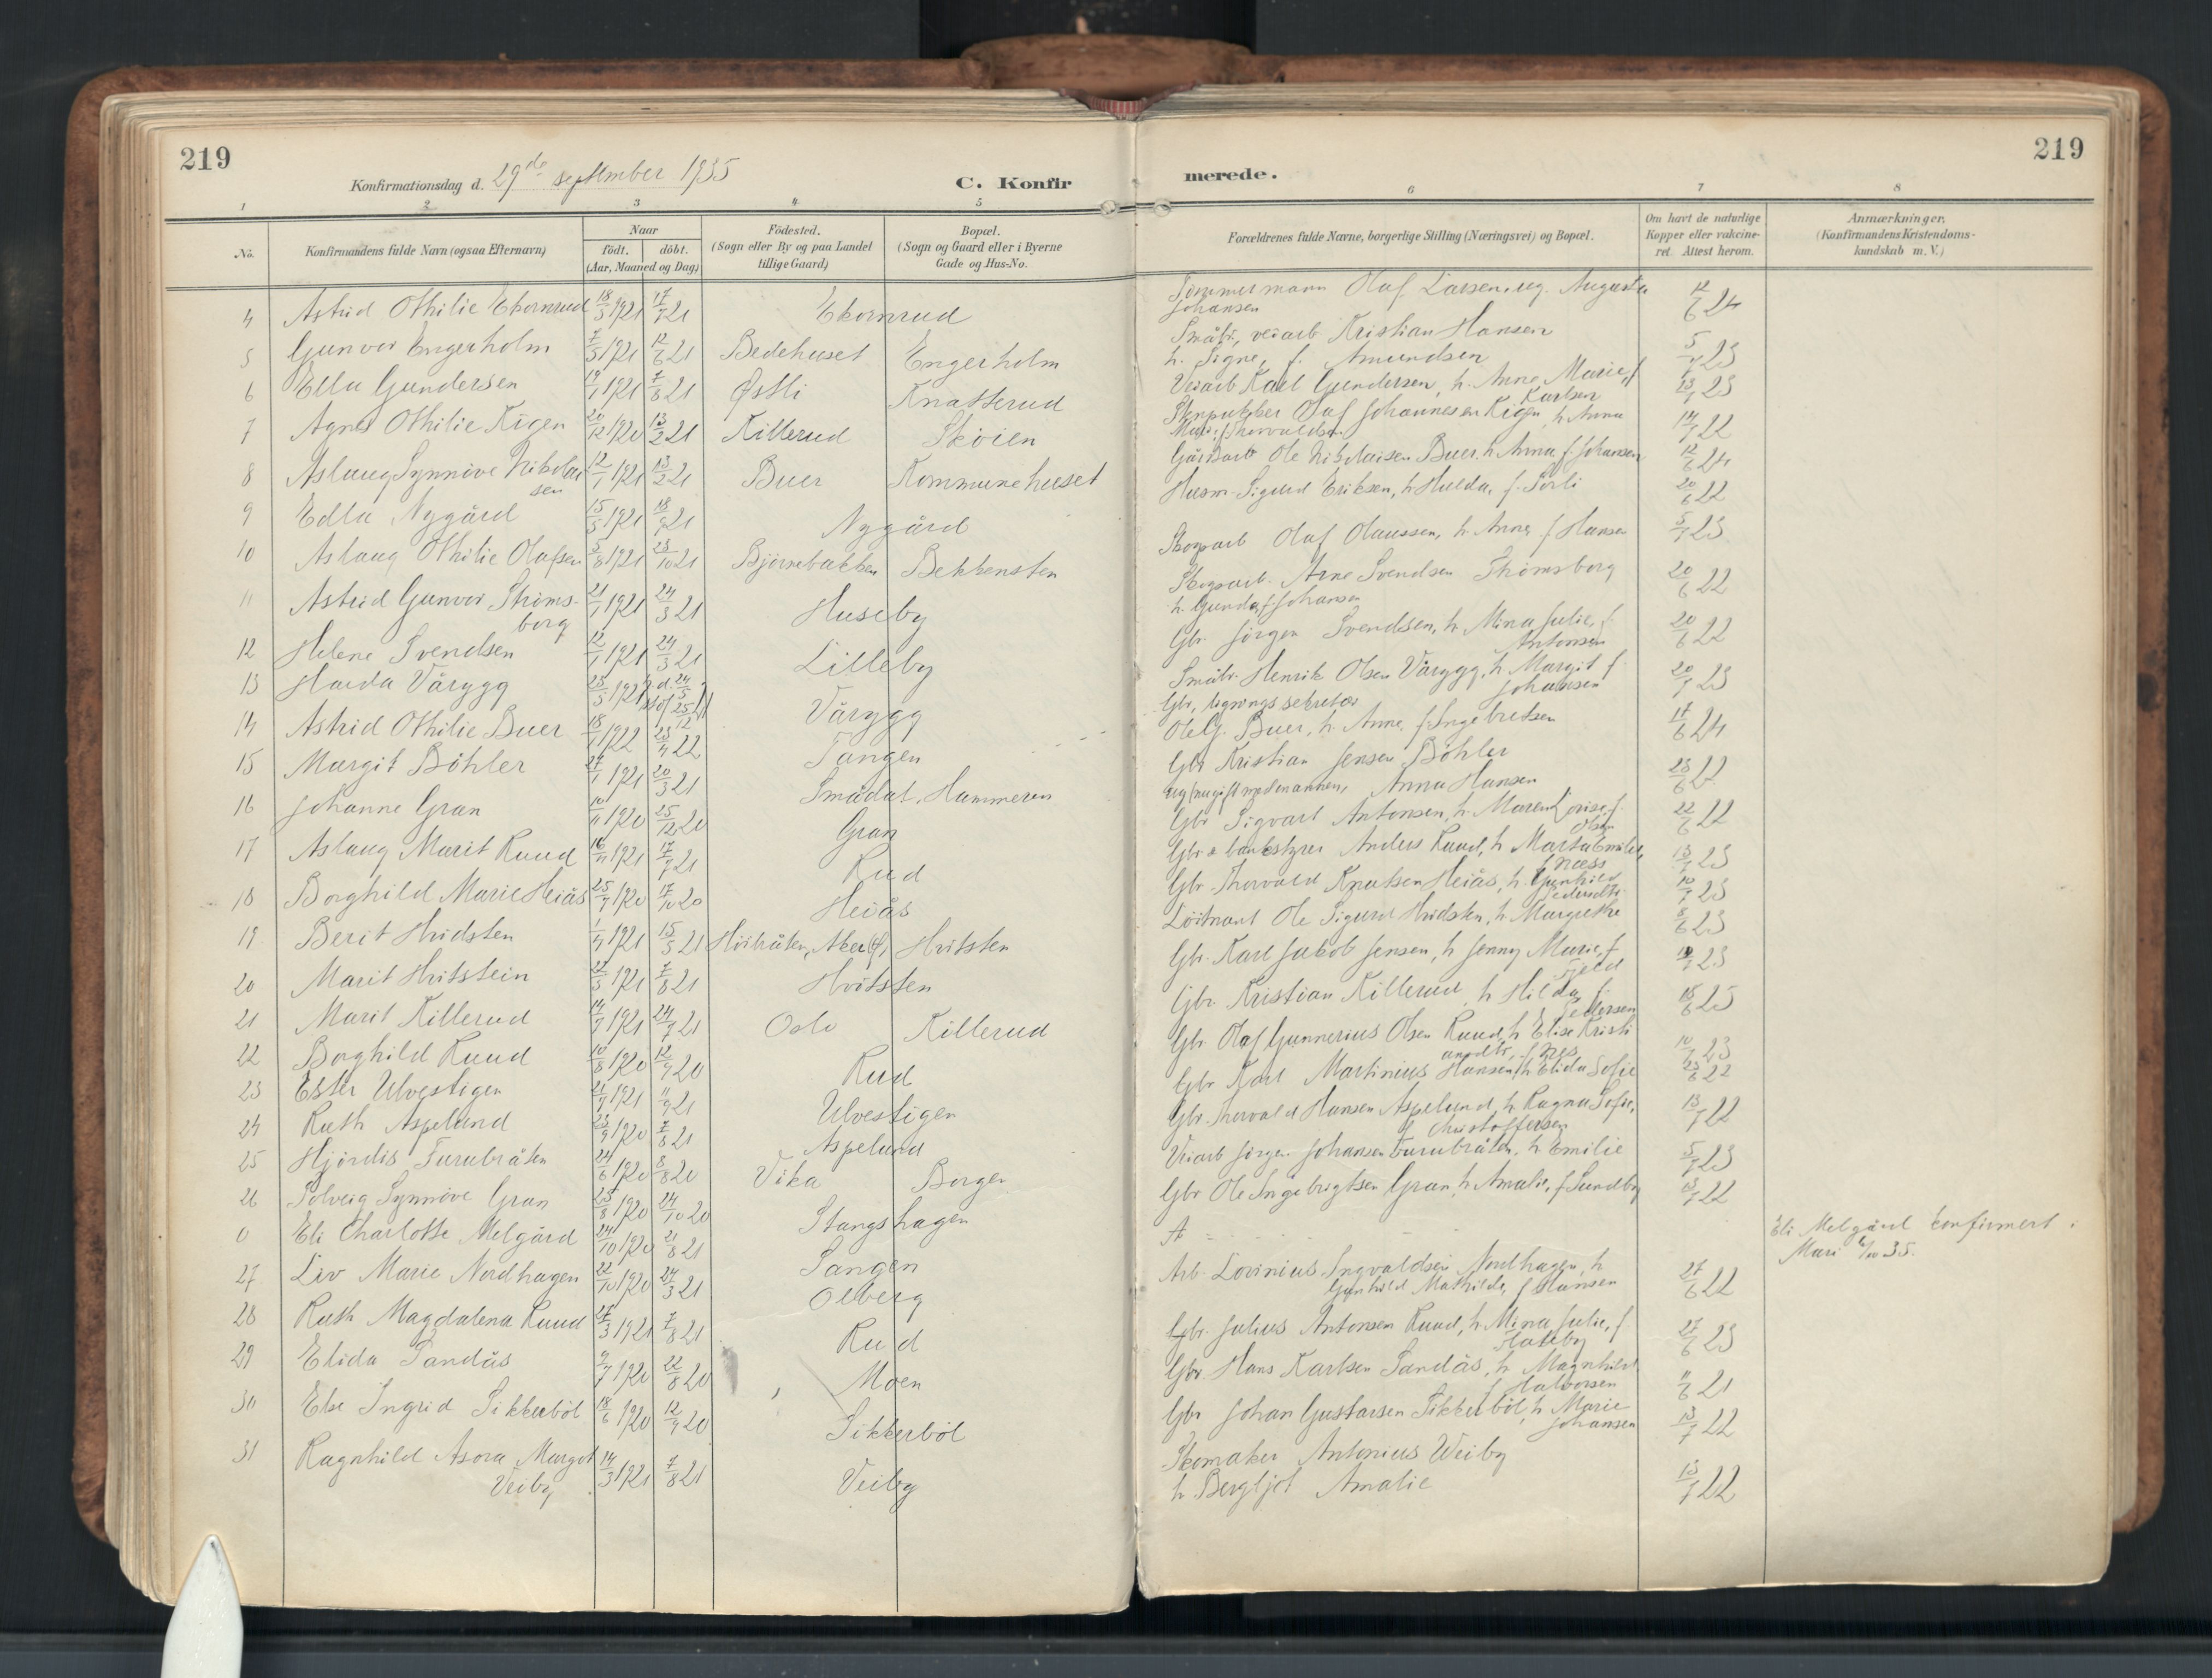 219
219
Konfirmationsdag d. 29de september 1935
C. Konfir
merede.
1 2 3 4 5 6 7 8
No.
Konfirmandens fulde Navn (ogsaa Efternavn)
Naar
födt. döbt.
(Aar, Maaned og Dag)
Födested.
(Sogn eller By og paa Landet
tillige Gaard)
Bopæl.
(Sogn og Gaard eller i Byerne
Gade og Hus-No.
Forældrenes fulde Navne, borgerlige Stilling (Næringsvei) og Bopæl.
Om havt de naturlige
Kopper eller vakcine-
ret. Attest herom.
Anmærkninger.
(Konfirmandens Kristendoms-
kundskab m. V.)
4 Astrid Othilie Ekornrud 18/3 1921 17/7 21 Ekornrud Tömmermann Olaf Larsen, ug. Augusta 12/6 24
Johansen
5 Gunvor Engerholm 7/5 1921 12/6 21 Bedehuset Engerholm Småbr, veiarb Kristian Hansen
h. Signe, f. Amundsen 5/7 23
6 Ella Gundersen 19/1 1921 7/8 21 Østli Knatterud Veiarb Karl Gundersen, h. Anne Marie, f 13/7 23
Karlsen
7 Agnes Othilie Kigen 20/12 1920 13/2 21 Killerud Sköien Olaf Johannesen Kigen, h Anna 14/7 22
Marie, f Thorvaldsen
8 Aslaug Synnöve Nikolai 12/1 1921 13/2 21 Buer Kommunehuset Gårdsarb Ole Nikolaisen Buer, h Anna f. Johansen 12/6 24
sen
9 Edla Nygård 15/5 1921 18/9 21 Nygård Husm. Sigurd Eriksen, h Hulda, f. Sörli 20/6 22
10 Aslaug Othilie Olafsen 5/8 1921 23/10 21 Björnebakken Bekkensten Skogsarb Olaf Olaussen, h. Anne f Hansen 5/7 23
11 Astrid Gunvor Ströms- 21/1 1921 24/3 21 Huseby Skogsarb. Arne Svendsen Strömsborg 20/6 22
borg
h. Gunda, f. Johansen
12 Helene Svendsen 12/1 1921 24/3 21 Lilleby Gbr Jörgen Svendsen, h. Mina Julie, f. 20/6 22
Antonsen
13 Harda Vårygg 23/3 1921 Vårygg Småbr. Henrik Olsen Vårygg, h. Margit f. 20/7 23
Johansen
14 Astrid Othilie Buer 18/1 1922 23/4 22 Tangen Gbr, ligningssekretær
Ole G. Buer, h. Anne, f. Ingebretsen 17/6 24
15 Margit Böhler 27/1 1921 20/3 21 Smådal, Hammeren Gbr Kristian Jensen Böhler
ug (nu gift med en annen, Anna Hansen 23/6 22
16 Johanne Gran 10/11 1920 25/12 20 Gran Gbr Sigvart Antonsen, h. Maren Lovise, f. 22/6 22
Olsen
17 Aslaug Marit Ruud 16/4 1921 17/7 21 Rud Gbr & bankstyrer Anders Ruud, h Marta Emilie 13/7 23
f. Næss
18 Borghild Marie Heiås 25/7 1920 17/10 20 Heiås Gbr. Thorvald Knutsen Heiås, h. Gunhild 10/7 23
Pedersdtr.
19 Berit Hvidsten 1/4 1921 15/5 21 Höibråten, Aker Hvitsten Löitnant Ole Sigurd Hvidsten, h. Margrethe 8/6 23
20 Marit Hvitstein 27/5 1921 7/8 21 Hvitsten Gbr. Karl Jakob Jensen, h Jenny Marie, f 23
Fjeld
21 Marit Killerud 14/5 1921 24/7 21 Oslo Killerud Gbr. Kristian Killerud, h Hilda f. 18/6 25
Pettersen
22 Borghild Ruud 10/8 1920 12/9 20 Rud Gbr. Olaf Gunnerius Olsen Ruud, h Elise Kristi 10/7 23
ansdtr, f. Næs
23 Ester Ulvestigen 21/7 1921 11/9 21 Ulvestigen Gbr Karl Martinius Hansen, h Elida Sofie 23/6 22
24 Ruth Aspelund 23/9 1920 7/8 21 Aspelund Gbr. Thorvald Hansen Aspelund, h Ragna Sofie, 13/7 22
f. Christoffersen
25 Hjördis Furubråten 24/6 1920 8/8 20 Vika Borgen Veiarb Jörgen Johansen Furubråten, h Emilie 5/7 23
26 Solveig Synnöve Gran 25/8 1920 24/10 20 Stangshagen Gbr Ole Ingebrigtsen Gran, h Amalie, f Sundby 13/7 22
0 Eli Charlotte Melgård 24/10 1920 21/8 21 Tangen A Eli Melgård konfirmert i
Mari 6/10 35.
27 Liv Marie Nordhagen 22/10 1920 27/3 21 Olberg Arb. Lovinius Ingvaldsen Nordhagen, h 27/6 22
Gunhild Mathilde, f Hansen
28 Ruth Magdalena Ruud 17/3 1921 7/8 21 Rud Gbr. Julius Antonsen Ruud, h. Mina Julie, f 27/6 23
Haleby
29 Elida Sandås 9/7 1920 22/8 20 Moen Gbr. Hans Karlsen Sandås, h Magnhild 11/6 21
f. Halvorsen
30 Else Ingrid Sikkerböl 18/6 1920 12/9 20 Sikkerböl Gbr Johan Gustavsen Sikkerböl, h Marie 13/7 22
Johansen
31 Ragnhild Asora Margot 14/3 1921 7/8 21 Veiby Skomaker Antonius Weiby
Veiby
h. Bergljot Amalie 13/7 22